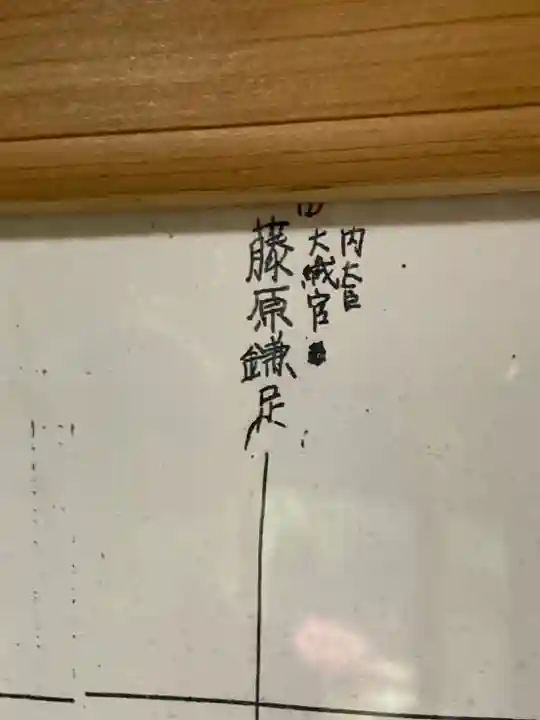 内大臣
大織官
藤原鎌足